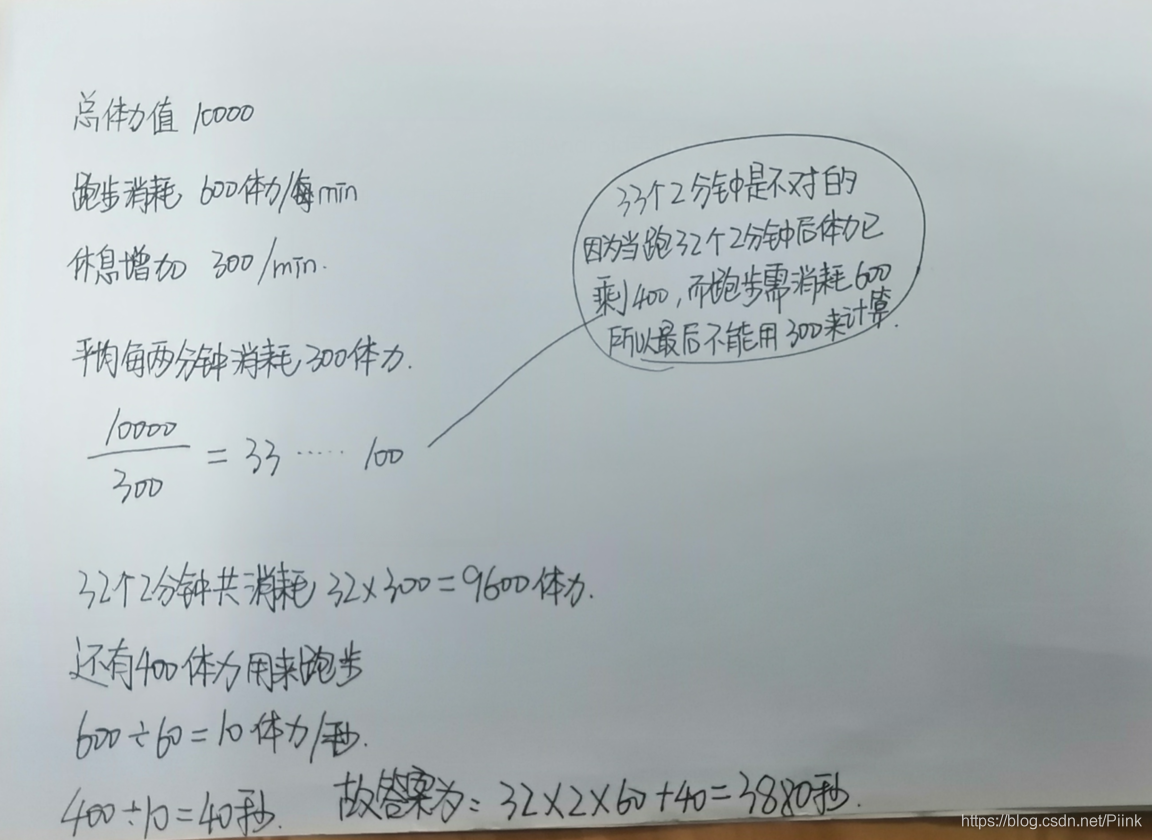 总体力值 10000
跑步消耗 600体力/每min
休息增加 300/min.
平均每两分钟消耗300体力.
10000
300
= 33 ····· 100
33个2分钟是不对的
因为当跑32个2分钟后体力已
剩400,而跑步需消耗600
所以最后不能用300来计算.
32个2分钟共消耗 32×300=9600体力.
还有400体力用来跑步
600÷60=10体力/秒.
400÷10=40秒. 故答案为: 32×2×60+40=3880秒.
https://blog.csdn.net/Piink